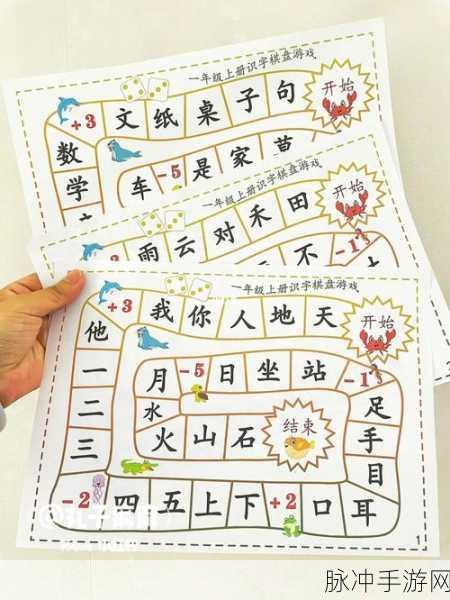 一年级上册识字棋盘游戏
+3 文 纸 桌 子 句 开始
数
学
车 -5 是 家 苗
一年级上册识字棋盘游戏
雨 云 对 禾 田 开始
不 -1
3
一年级上册识字棋盘游戏
+3 我 你 人 地 天 开始
他
一 月 -5 日 坐 站 -1
二 水 足
三 火 山 石 结束 手
目
-2 四 五 上 下 +2 口 耳
1
脉冲手游网